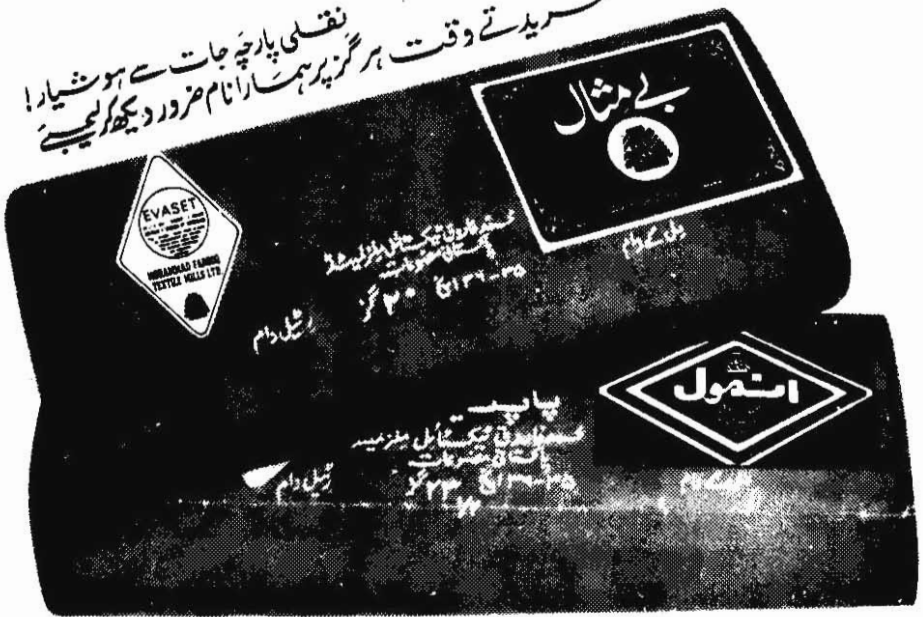 نقلی پارچہ جات سے ہوشیار!
خریدتے وقت ہر گز پر ہمارا نام ضرور دیکھ کر لیجئے
بے مثال
EVASET
MOHAMMAD FAROOQ
TEXTILE MILLS LTD.
محمد فاروق ٹیکسٹائل ملز لمیٹڈ
پاکستانی مصنوعات
۳۵-۳۶ انچ ۲۰ گز
مل کے دام
رٹیل دام
انمول
پاپ
محمد فاروق ٹیکسٹائل ملز لمیٹڈ
پاکستانی مصنوعات
۳۵-۳۶ انچ ۲۳ گز
رٹیل دام